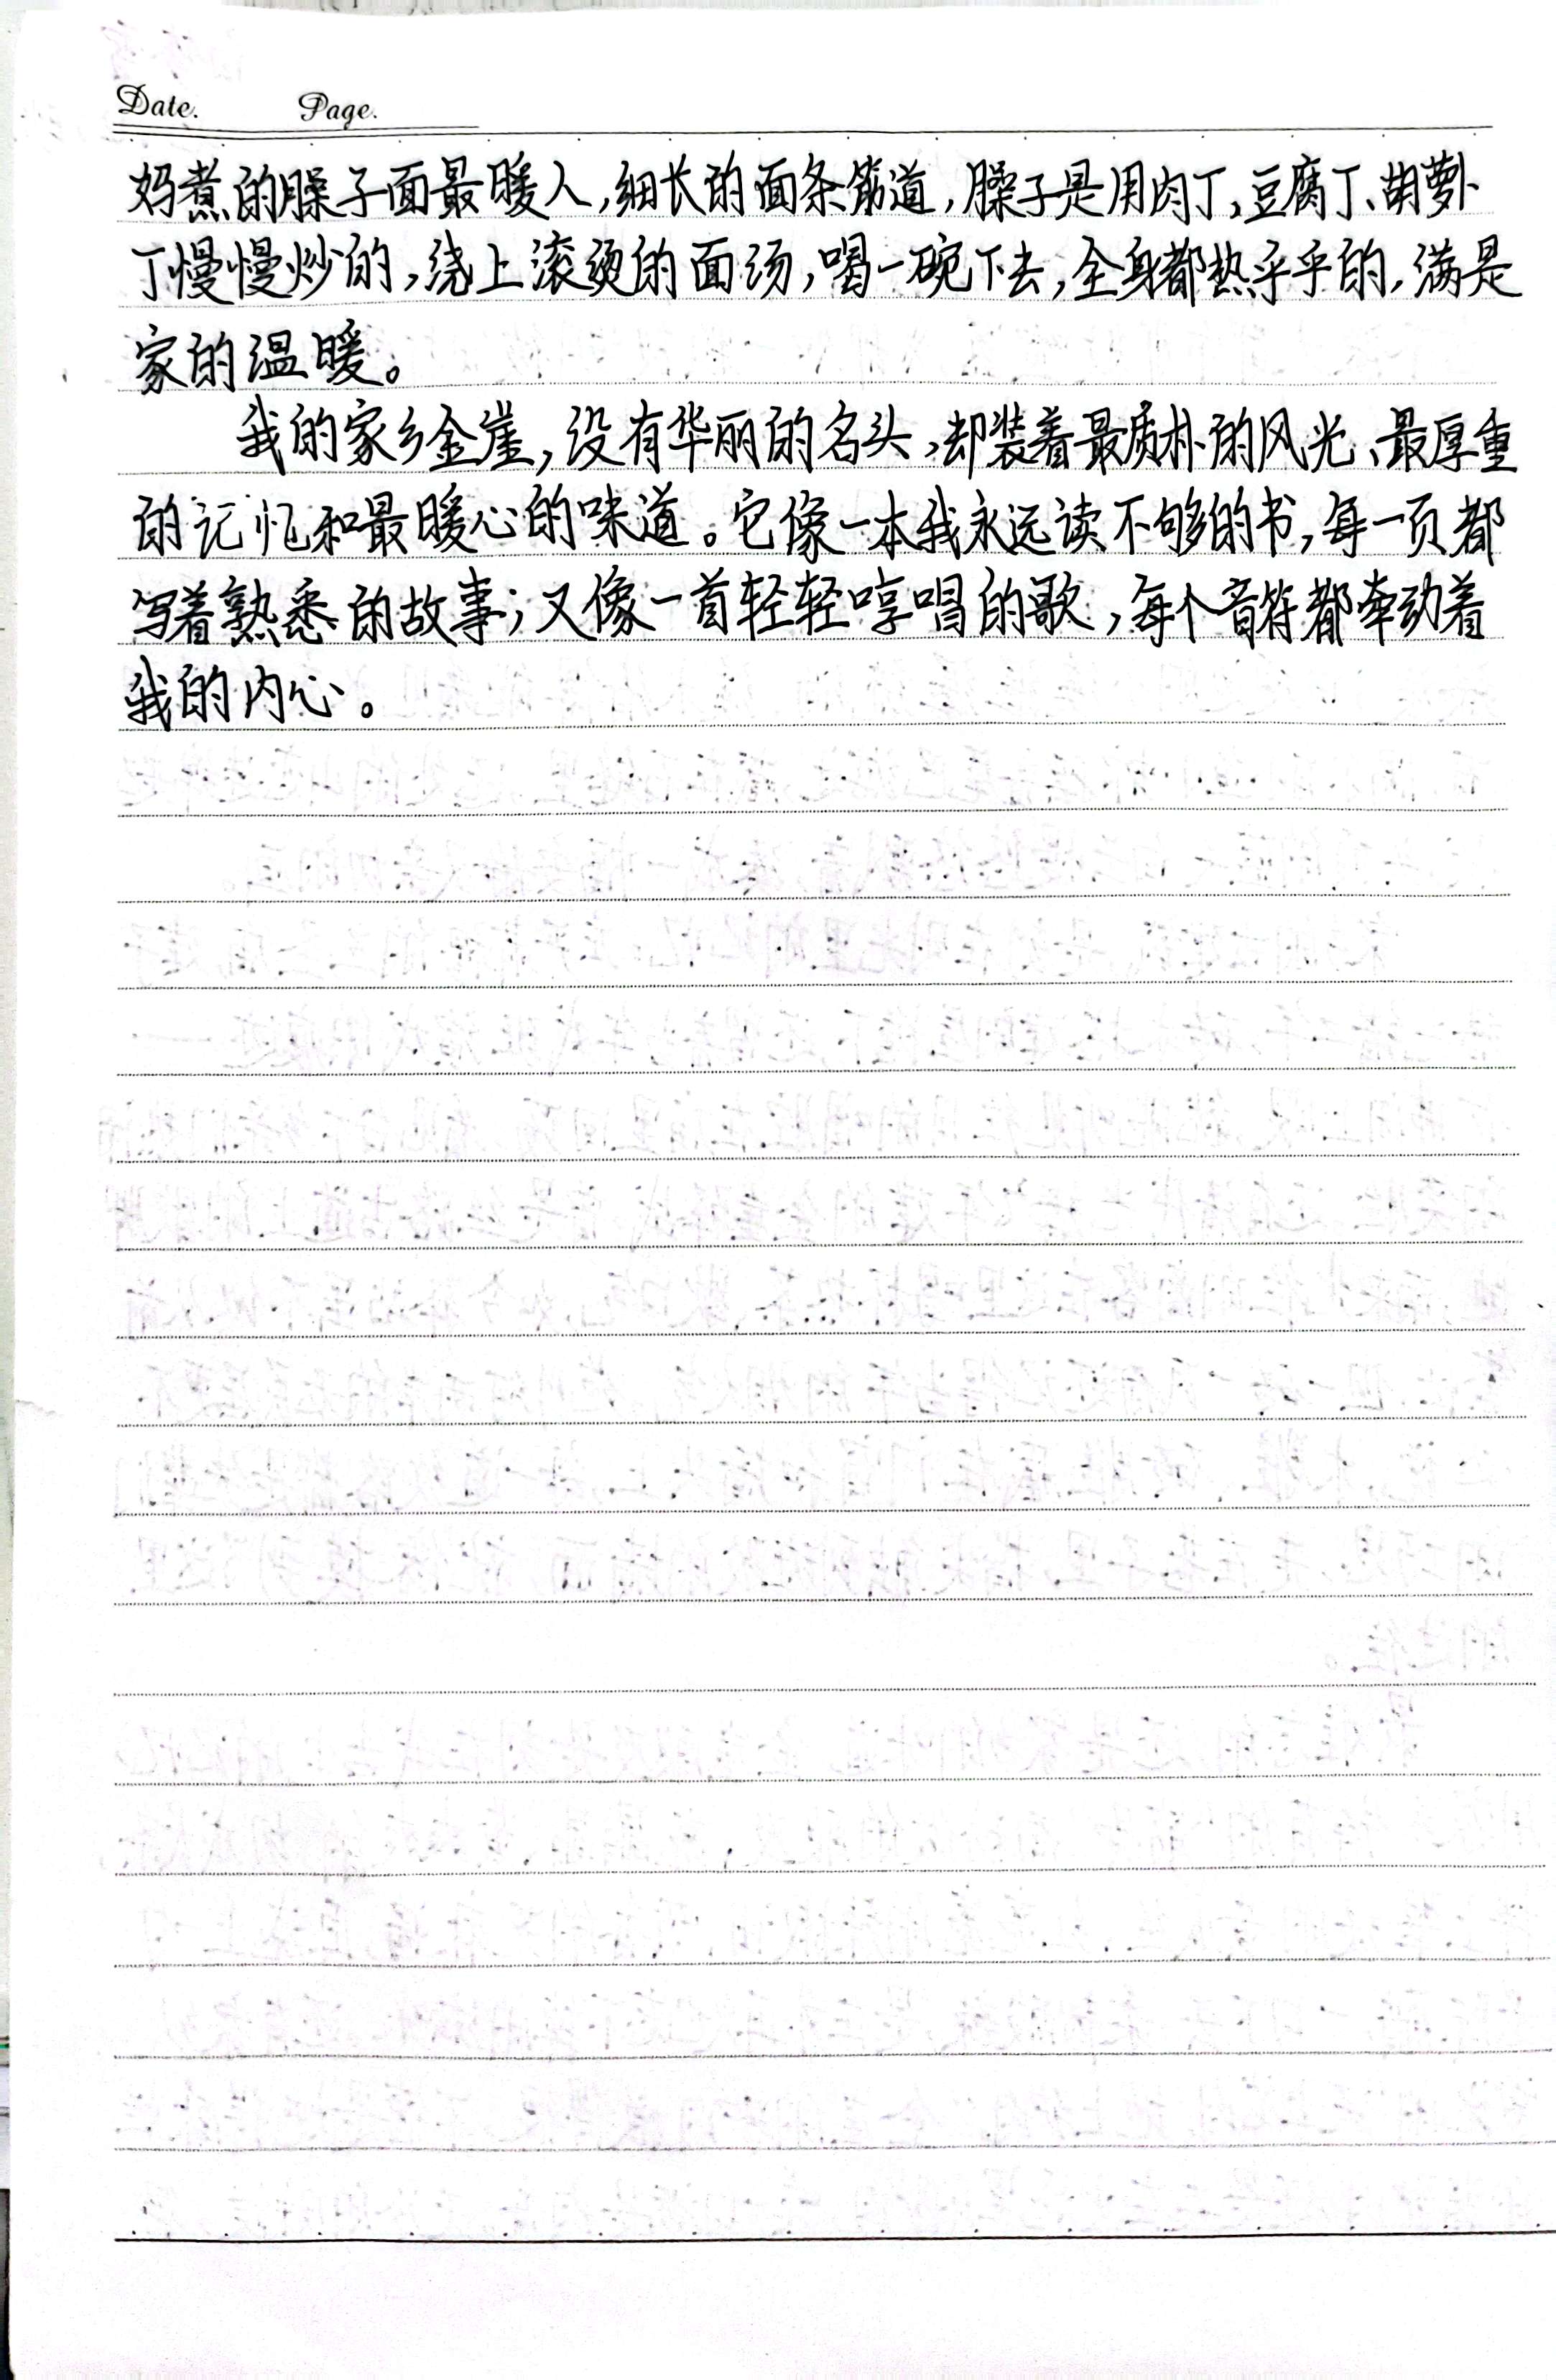 Date. Page.
妈煮的臊子面最暖人,细长的面条筋道,臊子是用肉丁、豆腐丁、胡萝卜
丁慢慢炒的,浇上滚烫的面汤,喝一碗下去,全身都热乎乎的,满是
家的温暖。
我的家乡金崖,没有华丽的名头,却装着最质朴的风光、最厚重
的记忆和最暖心的味道。它像一本我永远读不够的书,每一页都
写着熟悉的故事;又像一首轻轻哼唱的歌,每个音符都牵动着
我的内心。